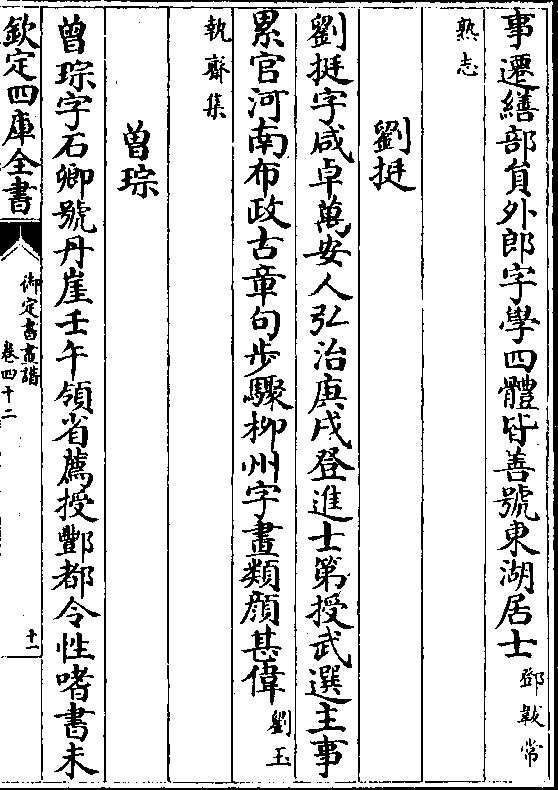 事遷繕部員外郎字學四體皆善號東湖居士鄧韍常
熟志
劉挺
劉挺字咸卓萬安人弘治庚戌登進士第授武選主事
累官河南布政古章句步驟柳州字畫類顔甚偉劉玉
執齋集
曾琮
曾琮字石卿號丹崖壬午領省薦授酆都令性嗜書未
欽定四庫全書
御定書畫譜
卷四十二
十一